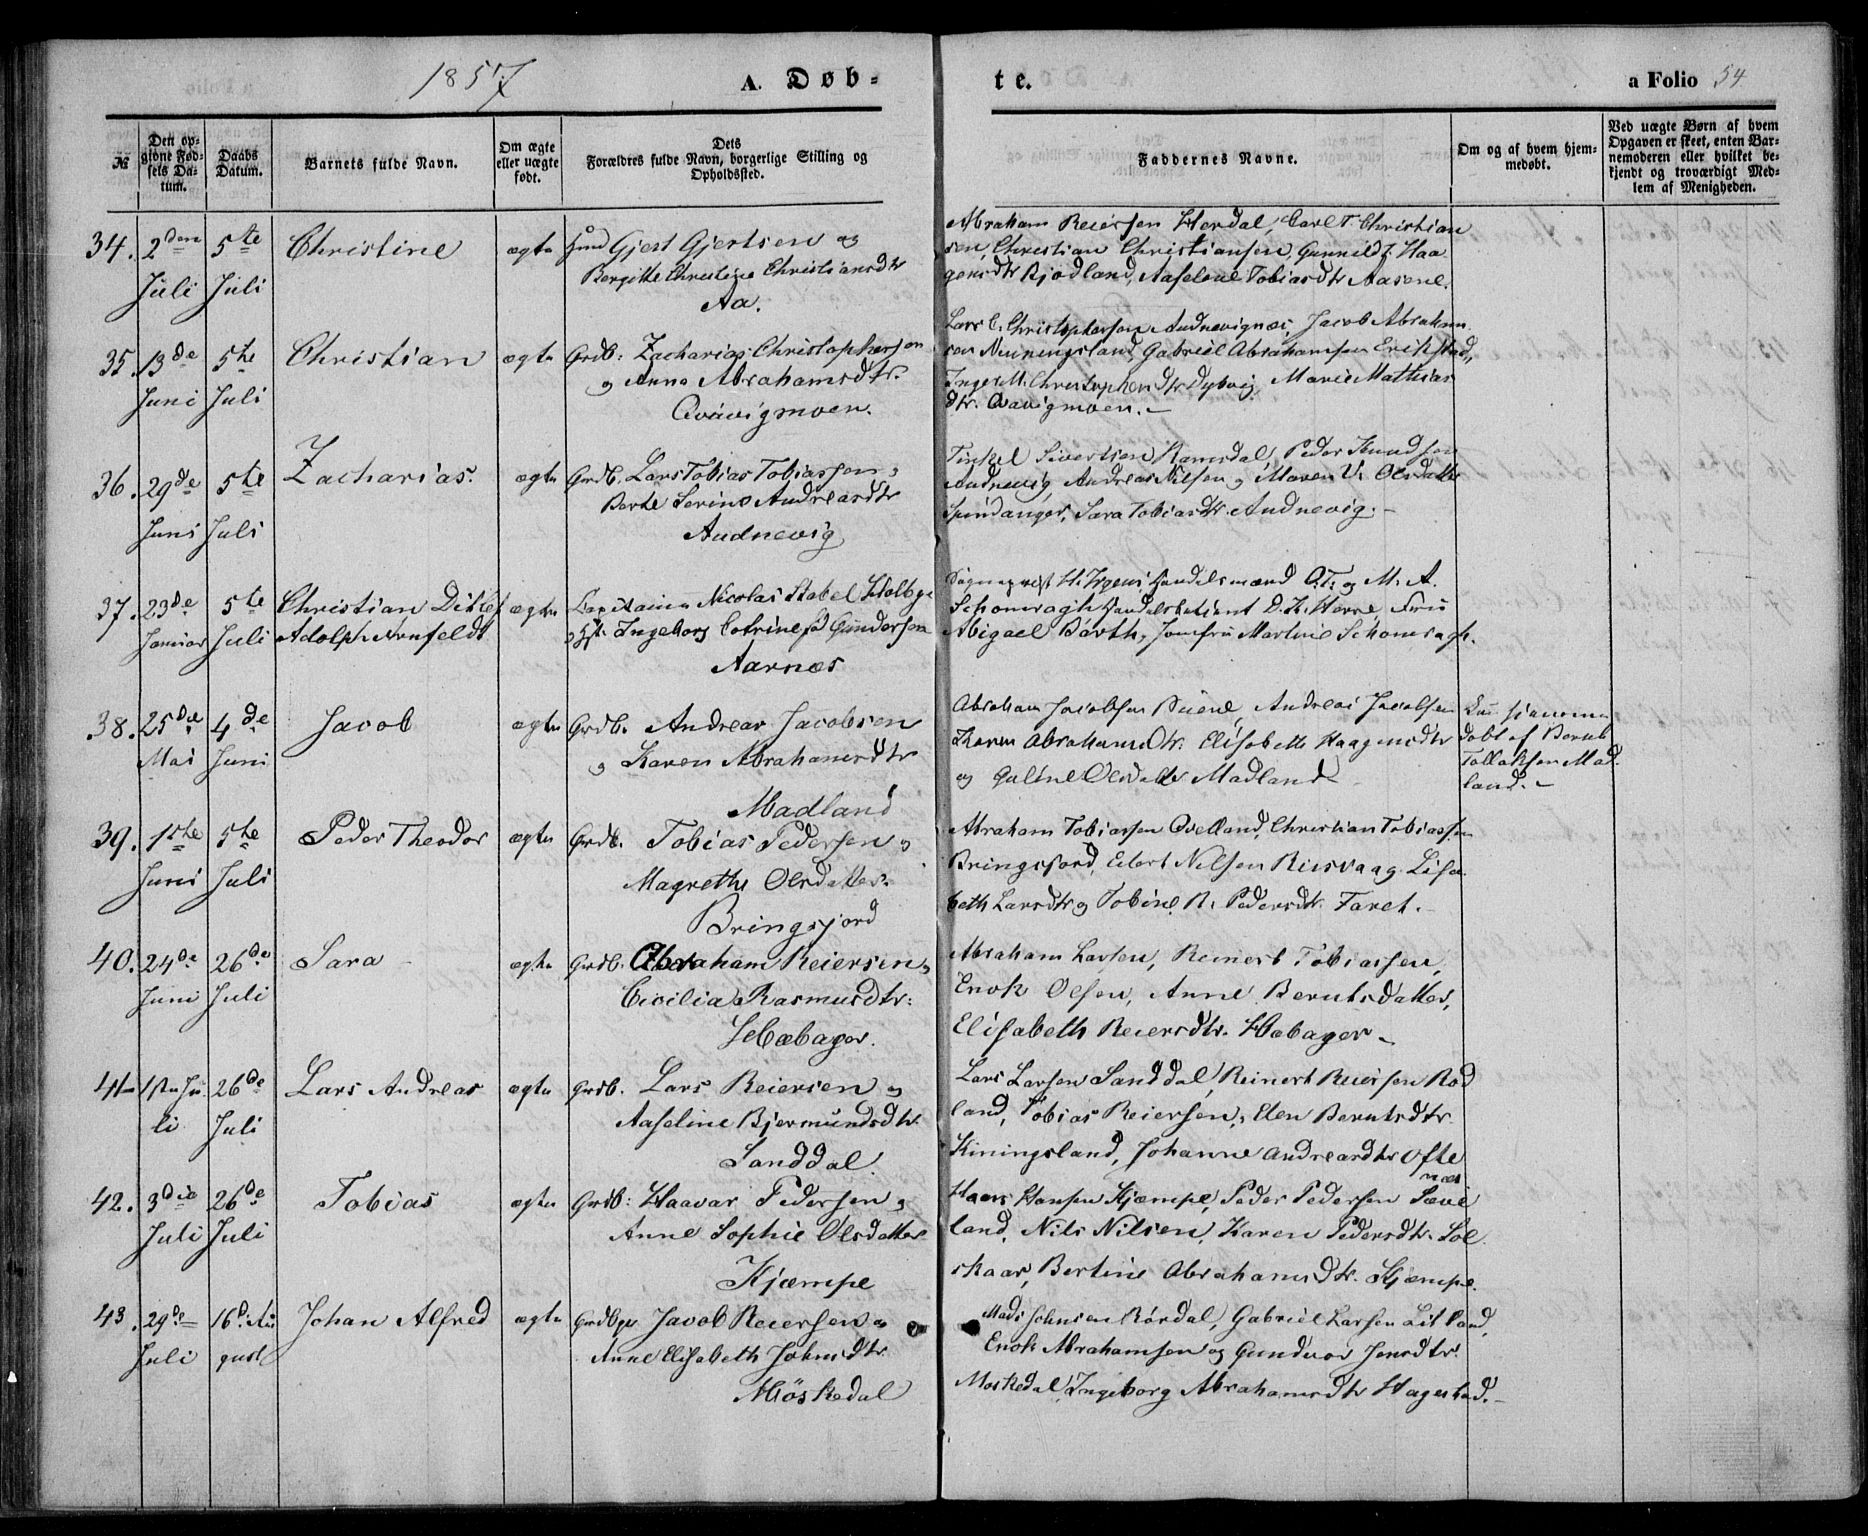 1857
A. Døb-
te.
a Folio 54
№
Den op-
givne Fød-
sels Da-
tum.
Daabs
Datum.
Barnets fulde Navn.
Om ægte
eller uægte
født.
Dets
Forældres fulde Navn, borgerlige Stilling og
Opholdssted.
Faddernes Navne.
Om og af hvem hjem-
medøbt.
Ved uægte Børn af hvem
Opgaven er skeet, enten Bar-
nemoderen eller hvilket be-
kjendt og troværdigt Med-
lem af Menigheden.
34. 2den Juli
5te Juli
Christine
ægte
Gjert Gjertsen og
Bergitte Christine Christiansdtr
Aa.
Abraham Reiersen Herdal, Carl T. Christian
sen, Christian Christiansen, Gunnild T. Haa
gensdtr Rjødland, Aaselene Tobiasdtr Aasene.
35. 13de Juni
5te Juli
Christian
ægte
Grdb: Zacharias Christophersen
og Anna Abrahamsdtr.
Qvavigmoen.
Lars C. Christophersen Audnevignes, Jacob Abraham
sen Nuningsland, Gabriel Abrahamsen Erikstad,
Inger M. Christophersdtr Dybvig, Marie Mathias
dtr. Qvavigmoen.-
36. 29de Juni
5te Juli
Zacharias.
ægte
Grdb. Lars Tobias Tobiassen og
Berte Serine Andreasdtr
Audnevig
Sivertsen Ramsdal, Peder Knudsen
Audnevig, Andreas Nilsen og Maren V. Olsdatter
Spindanger, Sara Tobiasdtr Audnevig.-
37. 23de Januar
5te Juli
Christian Ditlef
Adolph Arnfeldt
ægte
Capitaine Nicolas Stabel Holby
og Ingeborg Cotrine fød Gundersen
Aarnæs
Sognepræst H. Irgens Handelsmænd O.T. og M. A.
Schomragh Handelsbetjent D. H. Herre, Fru
Abigael Barth, Jomfru Martine Schomragh.
38. 25de Mai
4de Juni
Jacob
ægte
Grdb. Andreas Jacobsen
og Karen Abrahamsdtr
Madland
Abraham Jacobsen Buene, Andreas Jacobsen
Karen Abrahamsdtr. Elisabeth Haagensdtr
og Guline Olsdatter Madland
hjemme
døbt af Bernt
Tollaksen Mad
land.-
39. 15de Juni
5te Juli
Peder Theodor
ægte
Grdb. Tobias Pedersen og
Magrethe Olsdatter.
Bringsjord
Abraham Tobiassen Qvelland, Christian Tobiassen
Bringsjord, Edert Nilsen Risvaag Lisa
beth Larsdtr og Tobine R. Pedersdtr. Faret.-
40. 24de Juni
26de Juli
Sara
ægte
Grdb. Abraham Reiersen og
Cicilia Rasmusdtr:
Hæbager.
Abraham Larsen, Reinert Tobiassen,
Enok Olsen, Anne Berntsdatter,
Elisabeth Reiersdtr. Hæbager-
41. 1ste Ju
li
26de Juli
Lars Andreas
ægte
Grdb. Lars Reiersen og
Aaseline Bjermundsdtr
Sanddal.
Lars Larsen Sanddal, Reinert Reiersen Rød
land, Tobias Reiersen, Elen Berntsdtr.
Kiningsland, Johanne Andreasdtr Ofte
næs
42. 3die Juli
26de Juli
Tobias
ægte
Grdb: Haavar Pedersen og
Anne Sophie Olsdatter
Kjæmpe
Hans Hansen Kjæmpe, Peder Pedersen Sæve
land, Nils Nilsen, Karen Pedersdtr. Søl
skaar, Bertine Abrahamsdtr. Kjæmpe.
43. 29de Juli
16de Au
gust
Johan Alfred
ægte
Grdbgr Jacob Reiersen og
Anne Elisabeth Johnsdtr.
Møskedal
Mads Johnsen Rørdal, Gabriel Larsen Litland,
Enok Abrahamsen og Gundvor Jensdtr.
Møskedal, Ingeborg Abrahamsdtr Hagestad.-